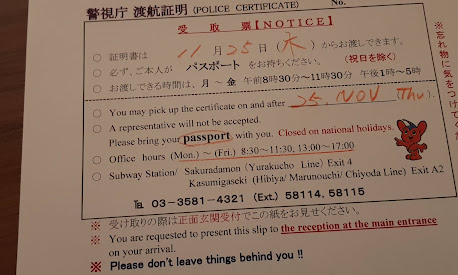 警視庁 渡航証明 (POLICE CERTIFICATE) No.
受 取 票【NOTICE】
○ 証明書は 11 月 25 日 (木) からお渡しできます。
○ 必ず、ご本人が パスポート をお持ちください。 (祝日を除く)
○ お渡しできる時間は、月 ~ 金 午前8時30分~11時30分 午後1時~5時
○ You may pick up the certificate on and after 25. NOV (Thu).
○ A representative will not be accepted.
Please bring your passport with you. Closed on national holidays.
○ Office hours (Mon.) ~ (Fri.) 8:30~11:30, 13:00~17:00
○ Subway Station/ Sakuradamon (Yurakucho Line) Exit 4
Kasumigaseki (Hibiya/ Marunouchi/ Chiyoda Line) Exit A2
℡ 03-3581-4321 (Ext.) 58114, 58115
※ 受け取りの際は正面玄関受付でこの紙をお見せください。
※ You are requested to present this slip to the reception at the main entrance
on your arrival.
※ Please don't leave things behind you !!
※忘れ物に気をつけてくだ